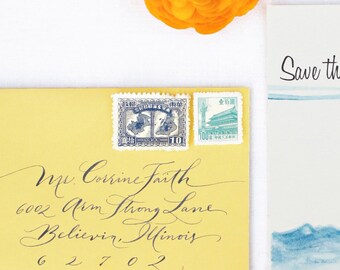 Save th
10
Ms. Corrine Faith
6002 Arm Strong Lane
Believin, Illinois
62702